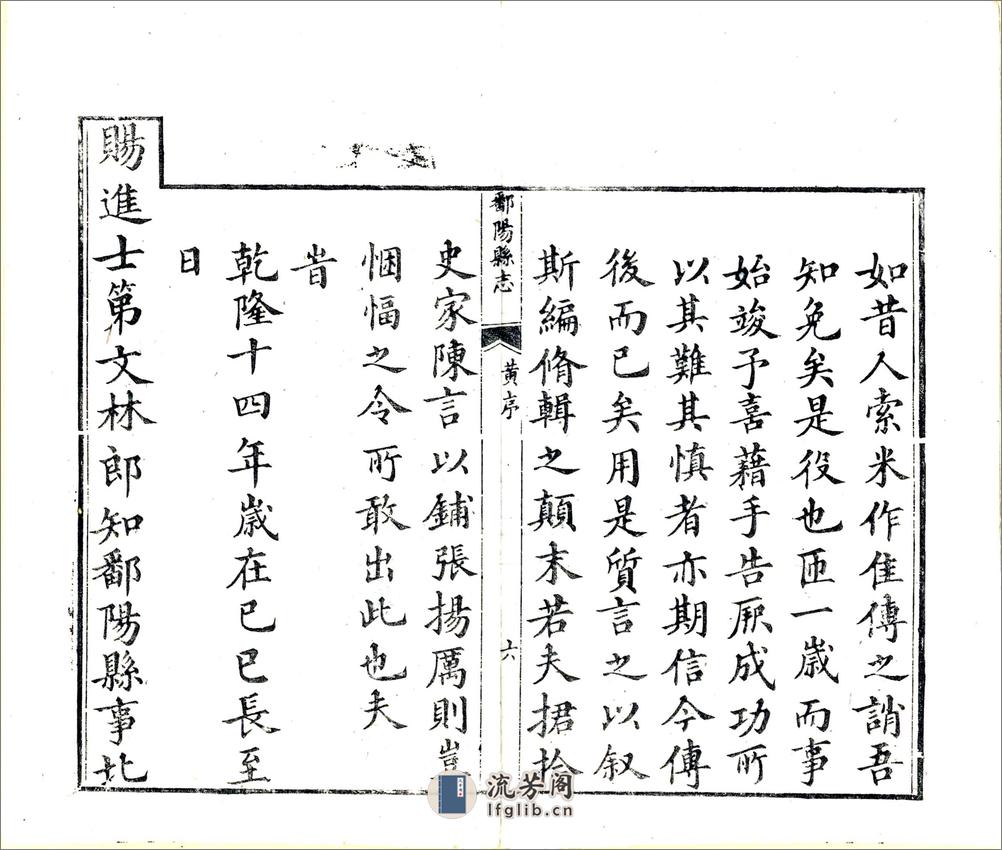 如昔人索米作佳傳之誚吾
知免矣是役也匝一歲而事
始竣予喜藉手告厥成功所
以其難其慎者亦期信今傳
後而已矣用是質言之以叙
斯編脩輯之顛末若夫捃拾
鄱陽縣志
黃序
六
史家陳言以鋪張揚厲則豈
悃愊之令所敢出此也夫
旹
乾隆十四年歲在己巳長至
日
賜進士第文林郎知鄱陽縣事北
流芳阁
lfglib.cn